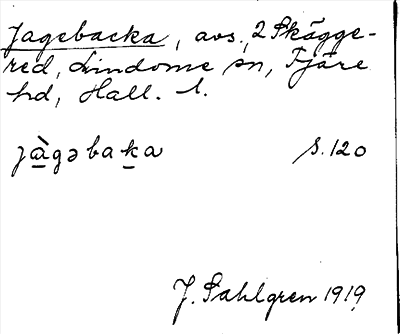 Jagebacka, avs., 2 Skägge-
red, Lindome sn, Fjäre
hd, Hall. l.
jàgəbaka s. 120
J. Sahlgren 1919